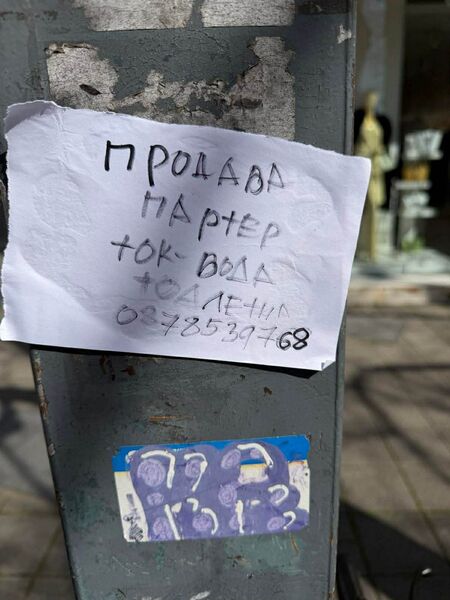 ПРОДАВА
ПАРТЕР
ТОК-ВОДА
ТОАЛЕТНА
0878539768